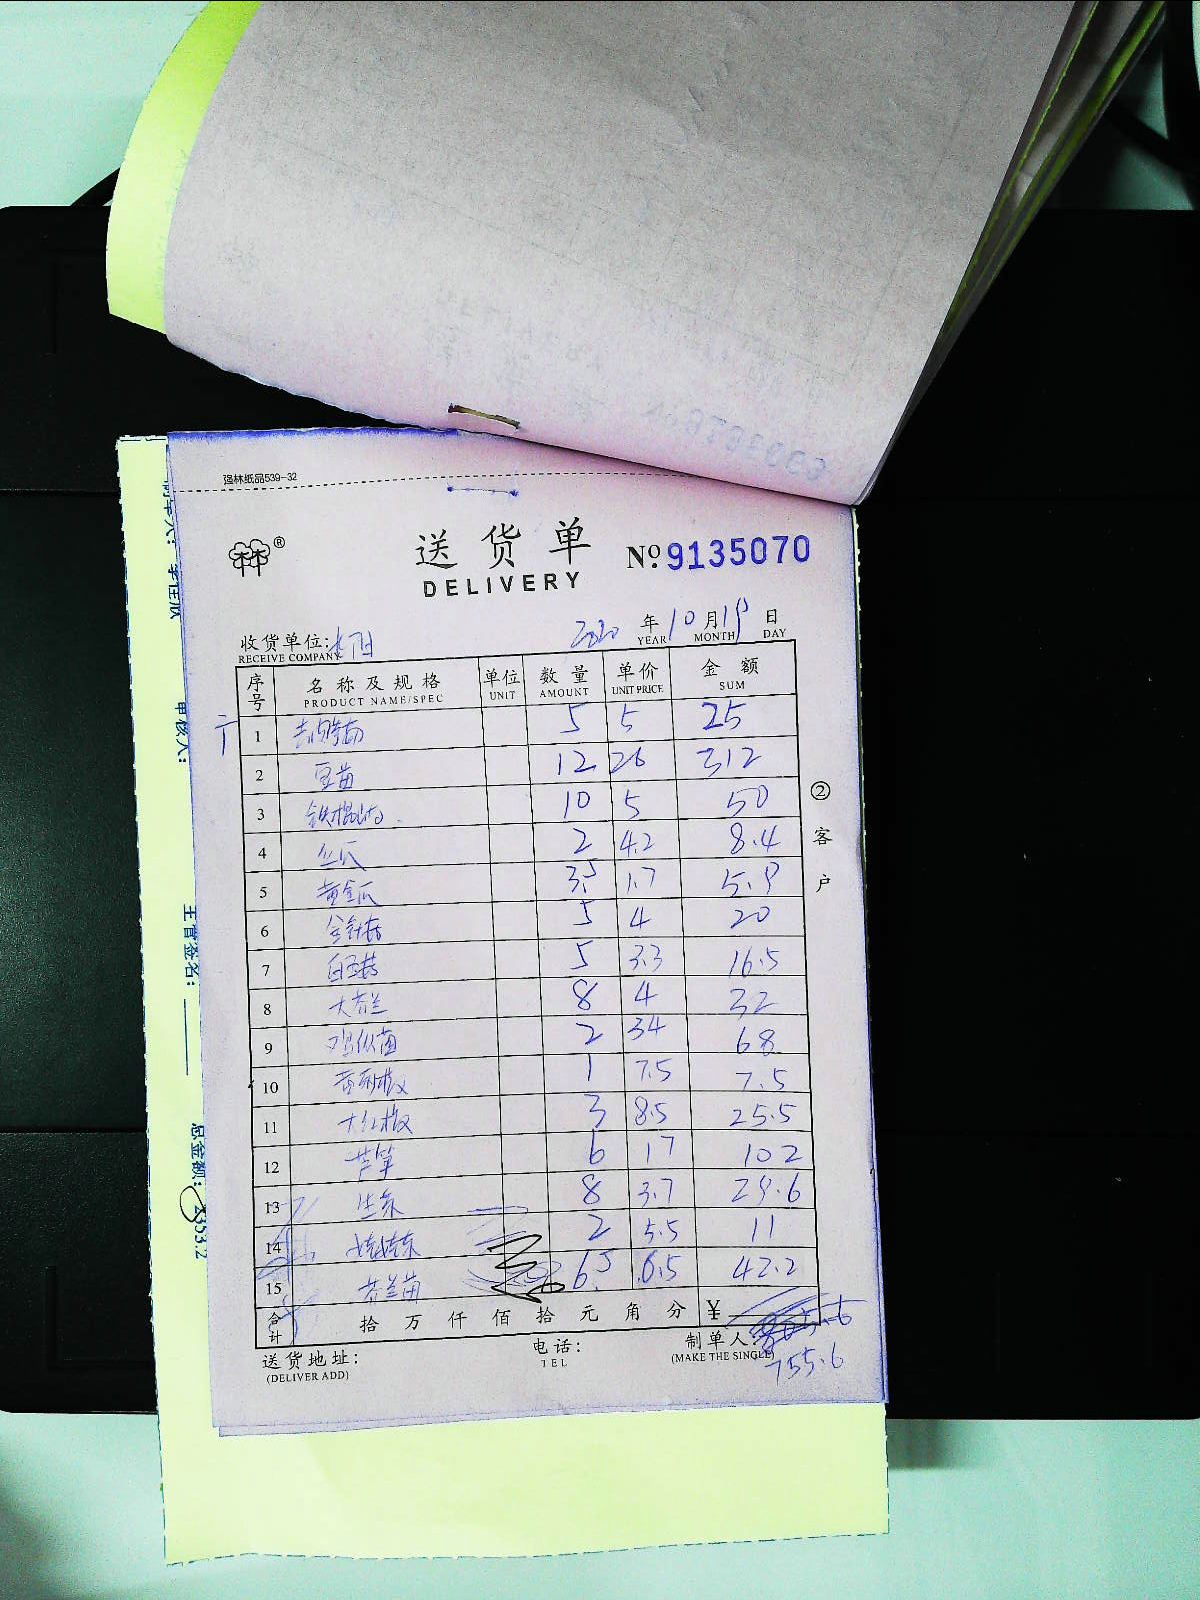 强林纸品539-32
林®
送货单
DELIVERY
№ 9135070
2020 年 10 月 19 日
YEAR MONTH DAY
收货单位:
RECEIVE COMPANY
序号 名称及规格 单位 数量 单价 金额
PRODUCT NAME/SPEC UNIT AMOUNT UNIT PRICE SUM
1 5 5 25
2 豆苗 12 26 312
3 铁棍山药 10 5 50
4 丝瓜 2 4.2 8.4
5 黄金瓜 3.5 1.7 5.9
6 金针菇 5 4 20
7 白玉菇 5 3.3 16.5
8 大芥兰 8 4 32
9 鸡纵菌 2 34 68
10 7.5 7.5 1
11 大红椒 3 8.5 25.5
12 芦笋 6 17 102
13 生菜 8 3.7 29.6
14 2 5.5 11
15 芥兰苗 6.5 6.5 42.2
合计 拾 万 仟 佰 拾 元 角 分 ¥
755.6
送货地址:
(DELIVER ADD)
电话:
TEL
制单人:
(MAKE THE SINGLE)
②客户
审核人:
主管签名:
总金额: 2353.2